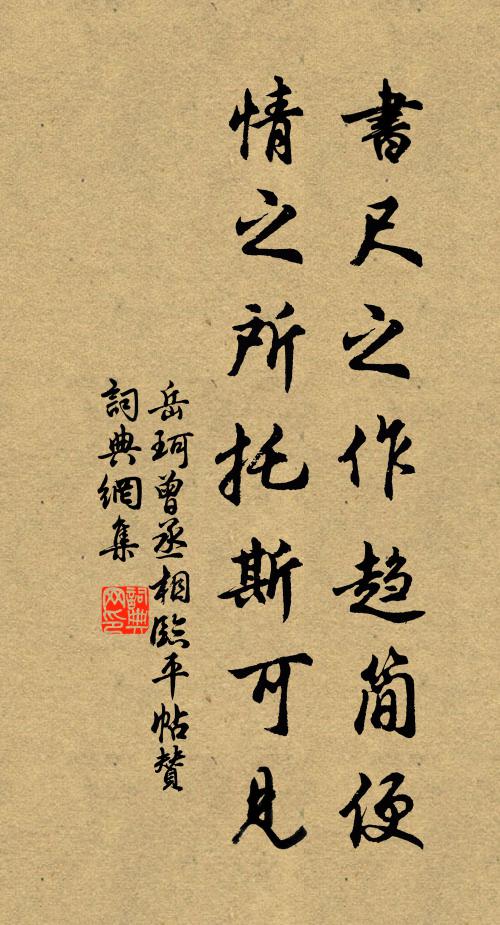 書尺之作趋简便
情之所托斯可見
岳珂曾丞相臨平帖贊
詞典網集
詞典網印